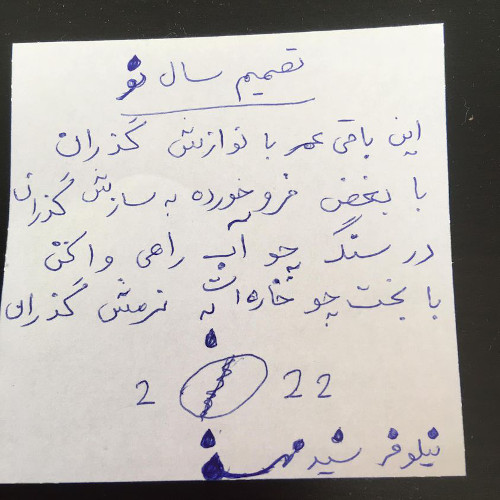 تصمیم سال نو
این باقی عمر با نوازش گذران
با بغض فرو خورده به سازش گذران
در سنگ چو آب راهی وا کن
با بخت چو خاره‌ات به نرمش گذران
2 22
نیلوفر شیدمهر